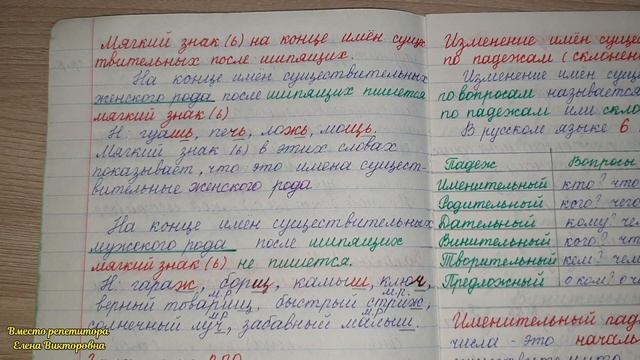 Мягкий знак (ь) на конце имён сущес-
твительных после шипящих.
На конце имен существительных
женского рода после шипящих пишется
мягкий знак (ь)
Н: гуашь, печь, ложь, мощь.
Мягкий знак (ь) в этих словах
показывает, что это имена существ-
вительные женского рода
На конце имен существительных
мужского рода после шипящих
мягкий знак (ь) не пишется.
Н: гараж, борщ, камыш, ключ,
верный товарищ, быстрый стриж,
м.р. м.р.
солнечный луч, забавный малыш.
м.р. м.р.
Изменение имён сущес
по падежам (склонени
Изменение имён сущ
по вопросам называется
по падежам или скло
В русском языке 6
Падеж Вопросы
Именительный кто? что
Родительный кого? чего
Дательный кому? че
Винительный кого? чт
Творительный кем? чем
Предложный о ком? о ч
Именительный пад
числа - это началь
Вместо репетитора
Елена Викторовна